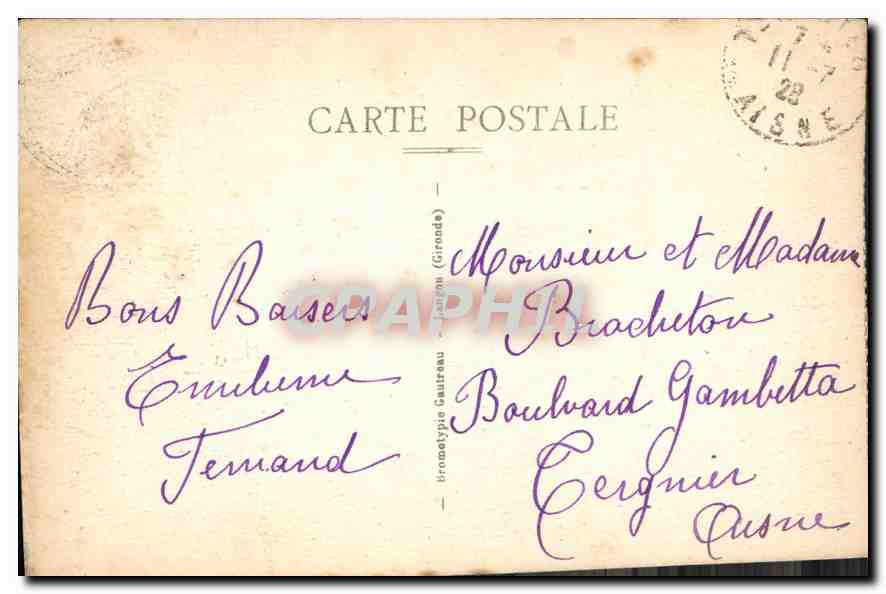 CARTE POSTALE
11 - 7
28
AISNE
Bons Baisers
Fernand
Bromotypie Gautreau - Langon (Gironde)
Monsieur et Madame
Bracheton
Boulvard Gambetta
Tergnier
Aisne
CPAPHIL